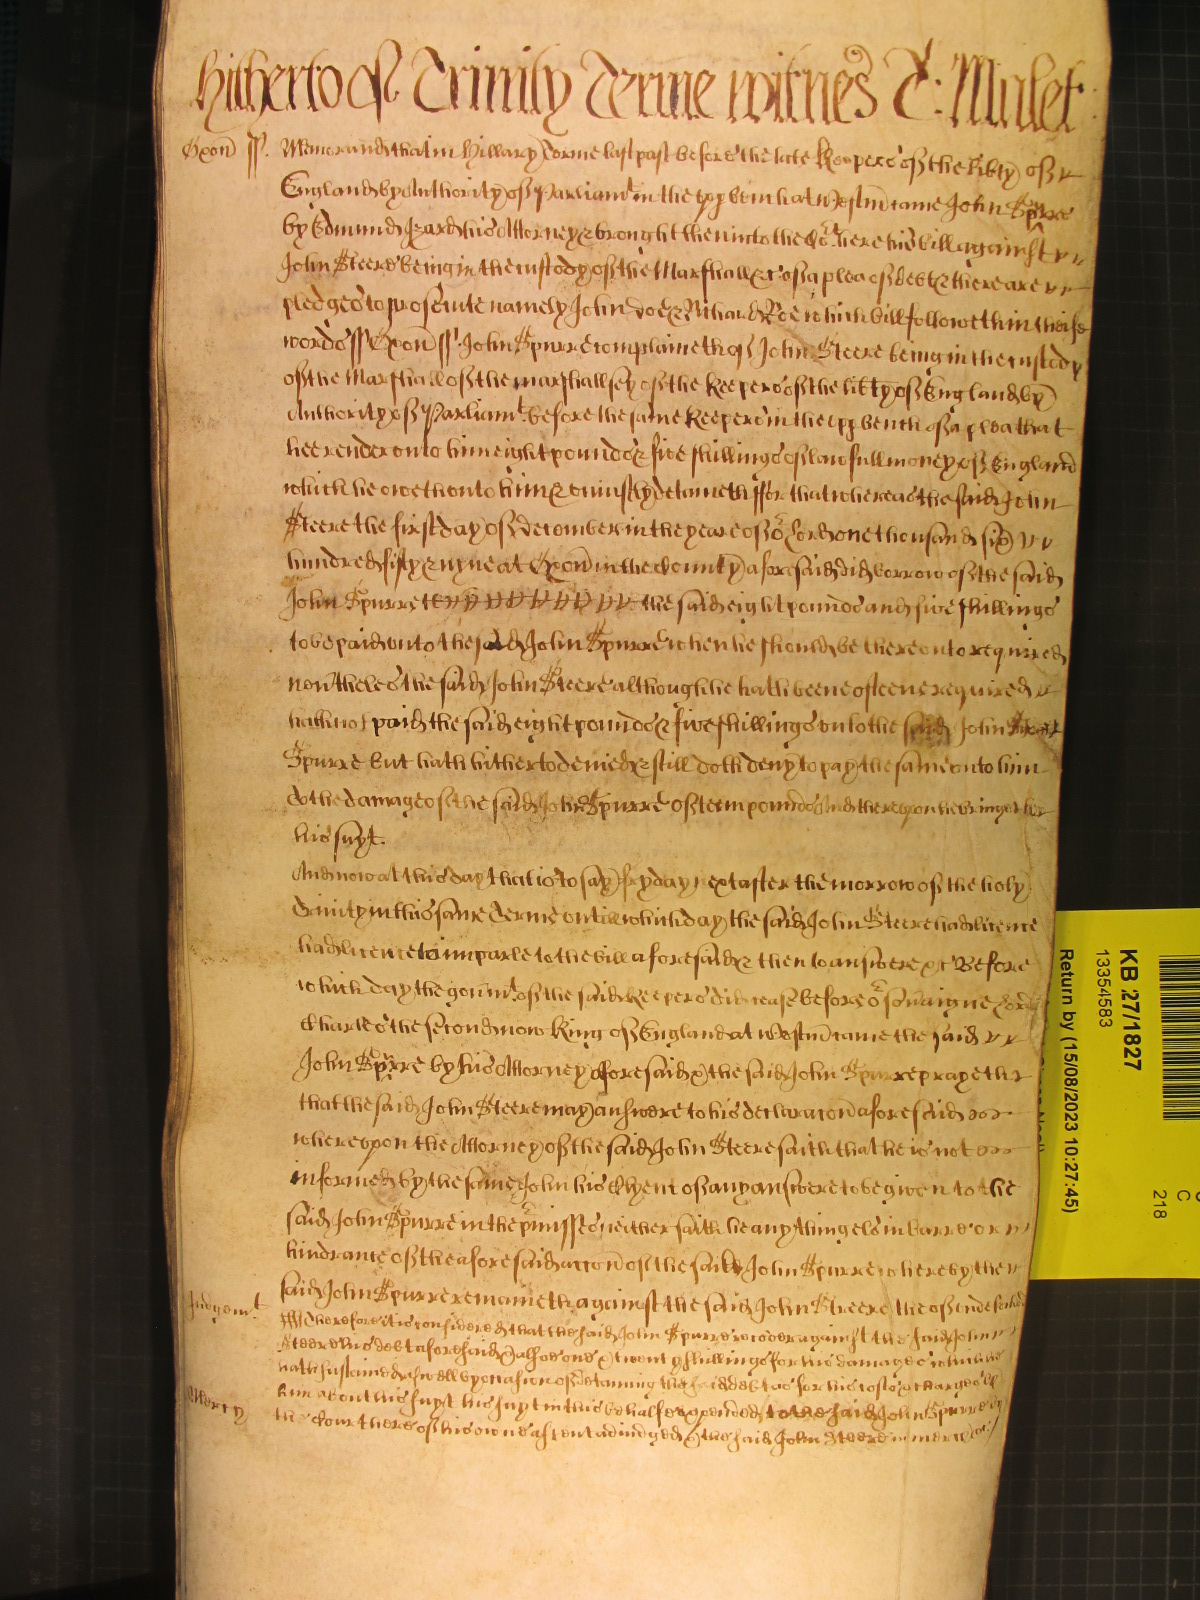 Hitherto of Trinity Terme witnes T: Mallet
Oxon ss. Memorand that in Hillary Terme last past before the late Keepers of the Libty of
England by Authority of Parliamt in the upp bench at Westm came John Spurre
by Edmund Izard his Attorney & brought then into the Cot here his bill against
John Steere being in the custody of the Marshall &c of a plea of debt & there are
pledges to prosecute namely John Doe & Richard Roe which bill followeth in theise
words ss Oxon ss. John Spurre complaineth of John Steere being in the custody
of the Marshall of the marshallsey of the Keepers of the libty of England by
Authority of Parliamt before the same Keepers in the upp bench of a plea that
hee render unto him eight pounds & five shillings of lawfull money of England
which he oweth unto him & uniustly detaineth ffor that whereas the said John
Steere the first day of December in the yeare of or Lord one thousand six
hundred fifty & nyne at Oxon in the County aforesaid did borrow of the said
John Spurre the said eight pounds and five shillings
to be paid unto the said John Spurre when he should be thereunto required
nevtheles the said John Steere although he hath beene ofteene required
hath not paid the said eight pounds & five shillings unto the said John
Spurre but hath hitherto denied & still doth deny to pay the same unto him
To the damage of the said John Spurre of tenn pounds And thereupon he bringeth
his suyt.
And now at this day that is to say fryday next after the morrow of the holy
Trinity in this same Terme untill which day the said John Steere had licence
had licence to imparle to the bill aforesaid & then to answere &c Before
which day the govmt of the said Keepers did cease before or Sovaigne Lord
Charles the second now King of England at Westm came the said
John Spurre by his Attorney aforesaid & the said John Spurre prayeth
that the said John Steere may answere to his declaracon aforesaid
whereupon the Attorney of the said John Steere saith that he is not
informed by the same John his Clyent of any answere to be given to the
said John Spurre in the pmisses neither saith he any thing els in barre or
hindrance of the aforesaid accon of the said John Spurre whereby the
said John Spurre remaineth against the said John Steere theof undefended
Judgemt. Therefore it is considered that the said John Spurre recover against the said John
Steere his debt aforesaid & alsoe one & twenty shillings for his damages which he
hath sustained aswell by occasion of detaining the said debt as for his costs & charges by
him about his suyt his suyt in this behalfe expended to the said John Spurre by
Mercy the Court here of his owne assent adiudged & the said John Steere in mercy &c.
KB 27/1827
13354583
Return by (15/08/2023 10:27:45)
C
218